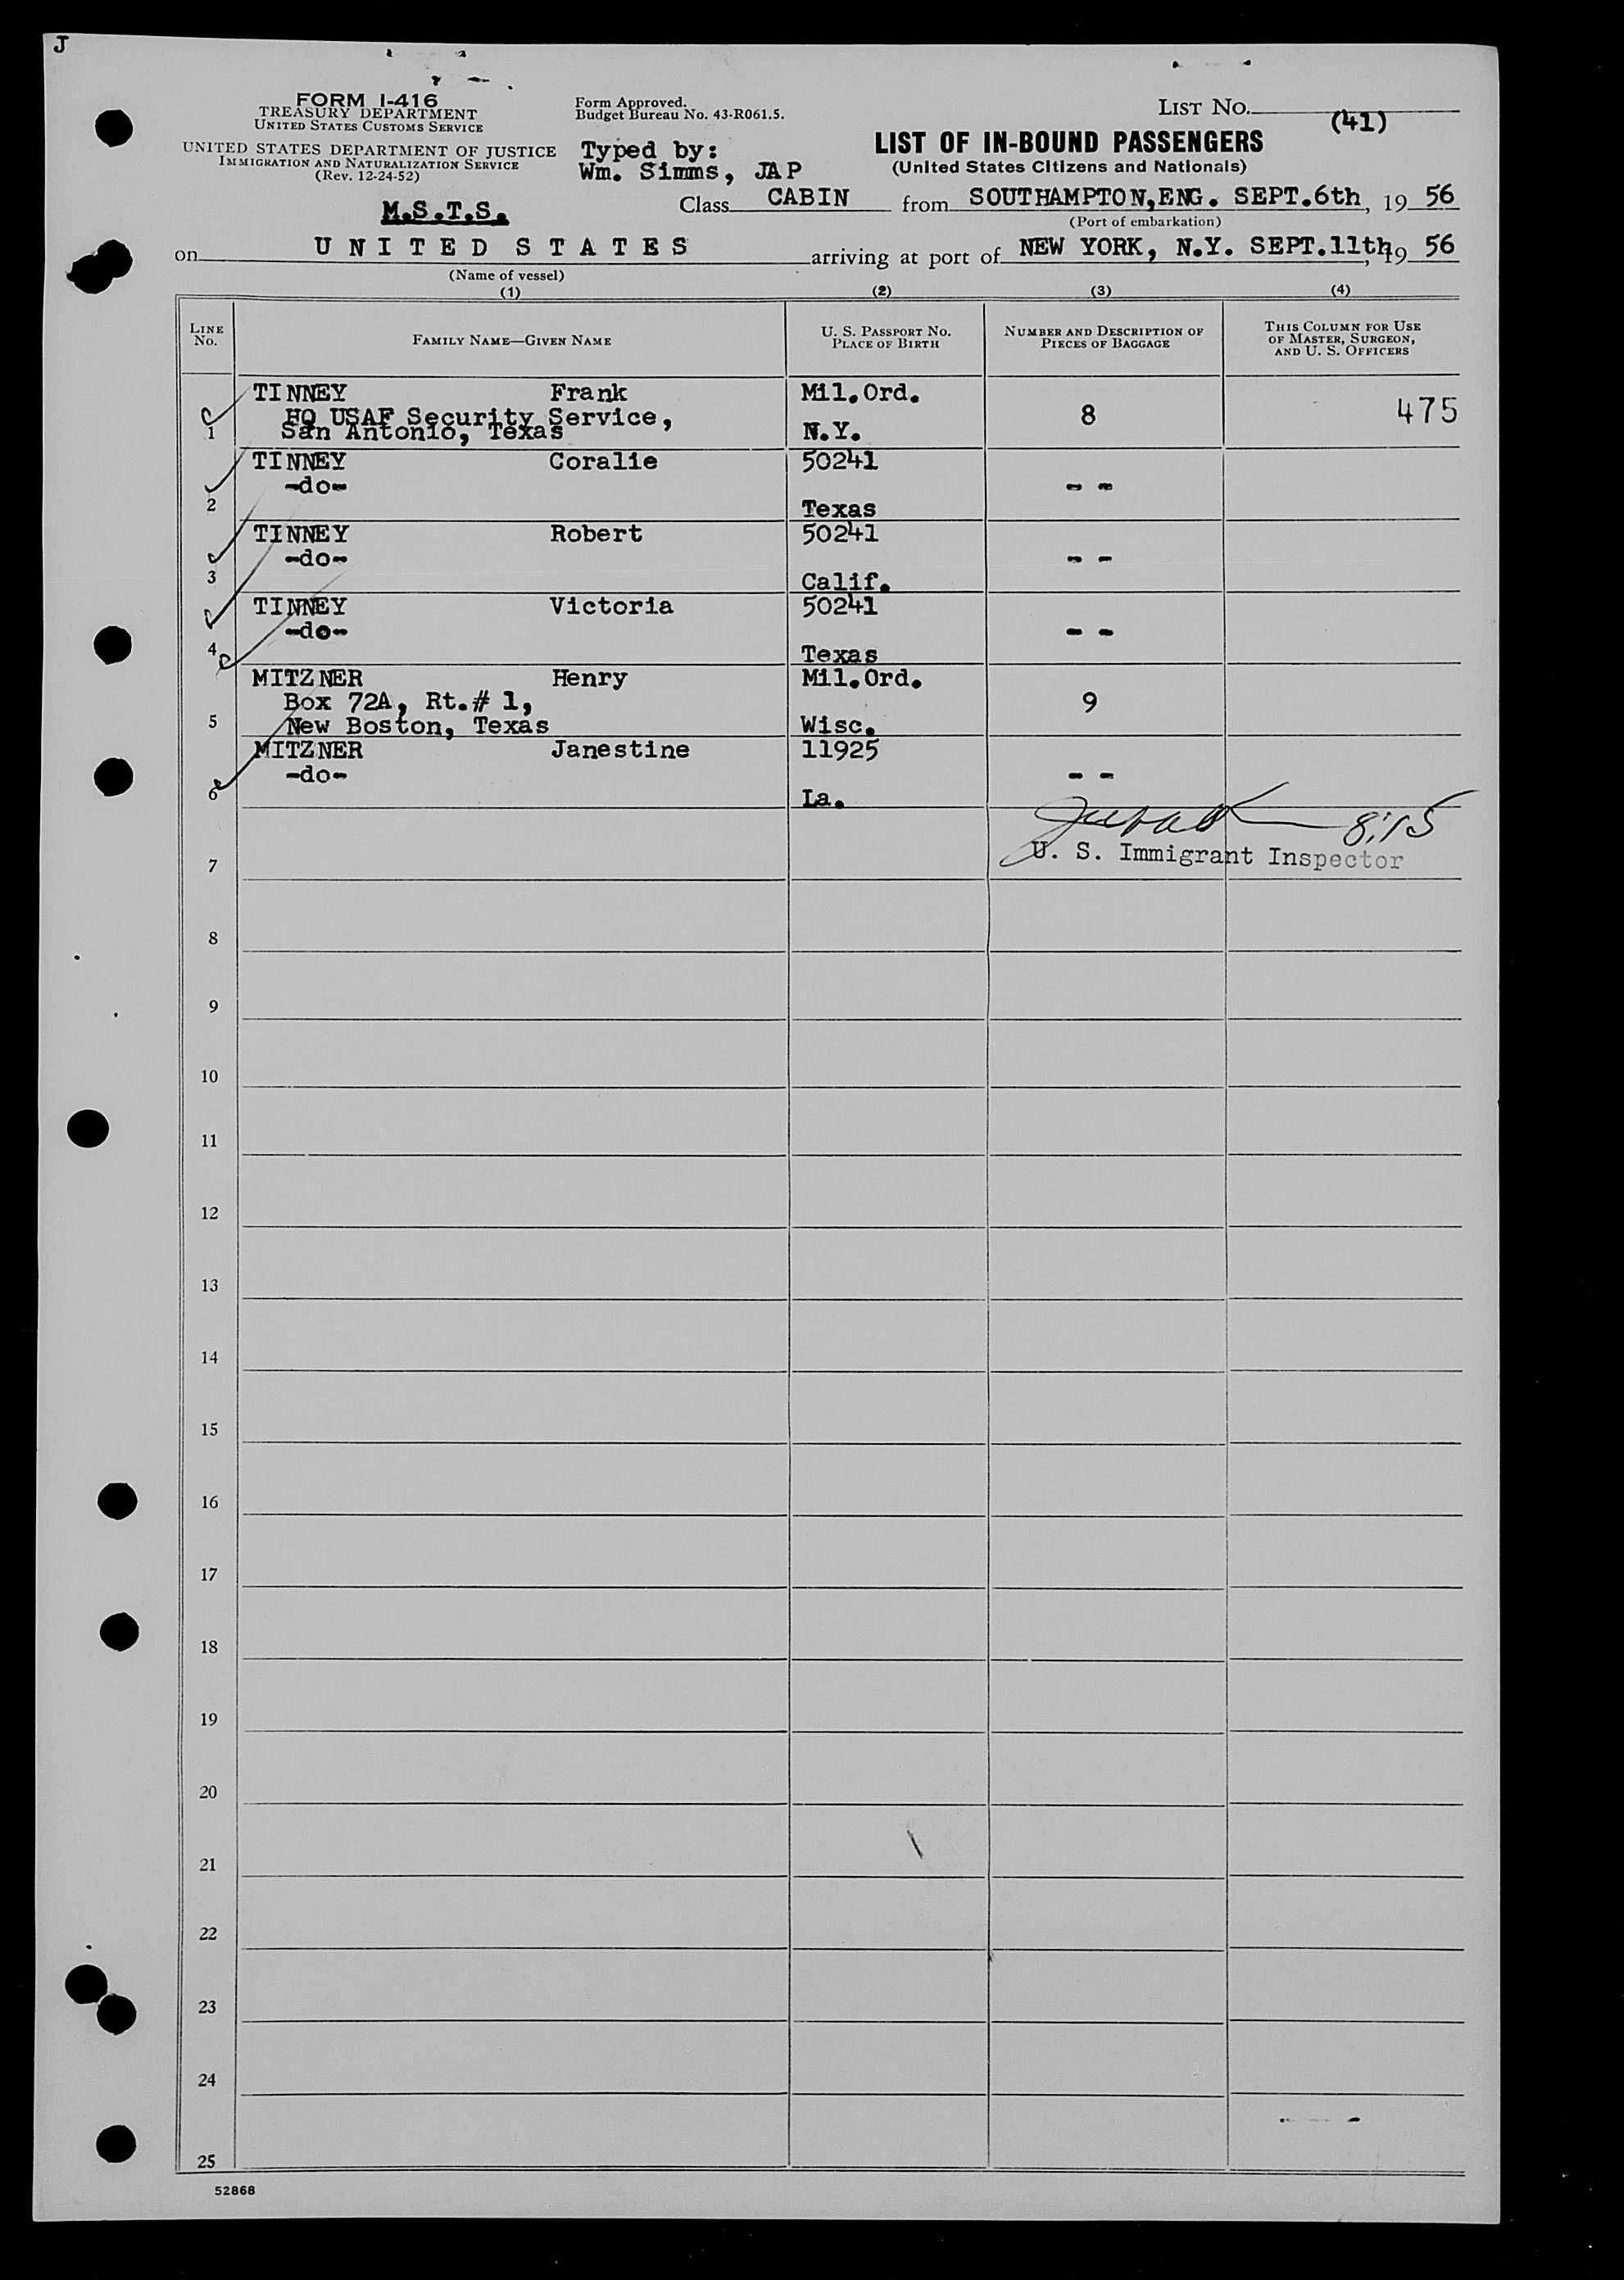 J
FORM I-416
TREASURY DEPARTMENT
UNITED STATES CUSTOMS SERVICE
UNITED STATES DEPARTMENT OF JUSTICE
IMMIGRATION AND NATURALIZATION SERVICE
(Rev. 12-24-52)
Form Approved.
Budget Bureau No. 43-R061.5.
Typed by:
Wm. Simms, JAP
LIST NO.
(41)
LIST OF IN-BOUND PASSENGERS
(United States Citizens and Nationals)
M.S.T.S.
Class CABIN from SOUTHAMPTON,ENG. SEPT.6th, 19 56
(Port of embarkation)
on UNITED STATES arriving at port of NEW YORK, N.Y. SEPT.11th, 19 56
(Name of vessel)
(1) (2) (3) (4)
LINE NO.
FAMILY NAME—GIVEN NAME
U. S. PASSPORT NO.
PLACE OF BIRTH
NUMBER AND DESCRIPTION OF
PIECES OF BAGGAGE
THIS COLUMN FOR USE
OF MASTER, SURGEON,
AND U. S. OFFICERS
TINNEY Frank Mil.Ord.
HQ USAF Security Service, 8 475
1 San Antonio, Texas N.Y.
TINNEY Coralie 50241
-do- - -
2 Texas
TINNEY Robert 50241
-do- - -
3 Calif.
TINNEY Victoria 50241
-do- - -
4 Texas
MITZNER Henry Mil.Ord.
Box 72A, Rt.# 1, 9
5 New Boston, Texas Wisc.
MITZNER Janestine 11925
-do- - -
6 La.
8:15
U. S. Immigrant Inspector
7
8
9
10
11
12
13
14
15
16
17
18
19
20
21
22
23
24
25
52868